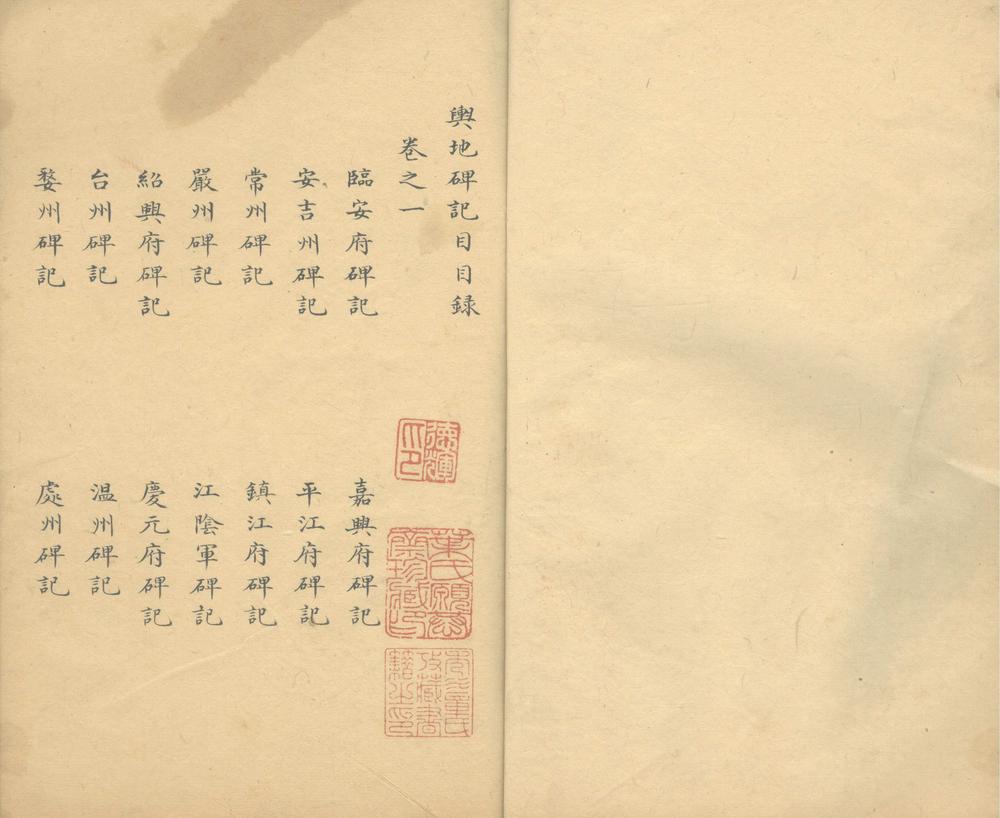 輿地碑記目目録
卷之一
臨安府碑記
嘉興府碑記
安吉州碑記
平江府碑記
常州碑記
鎮江府碑記
嚴州碑記
江陰軍碑記
紹興府碑記
慶元府碑記
台州碑記
温州碑記
婺州碑記
處州碑記
德輝
之印